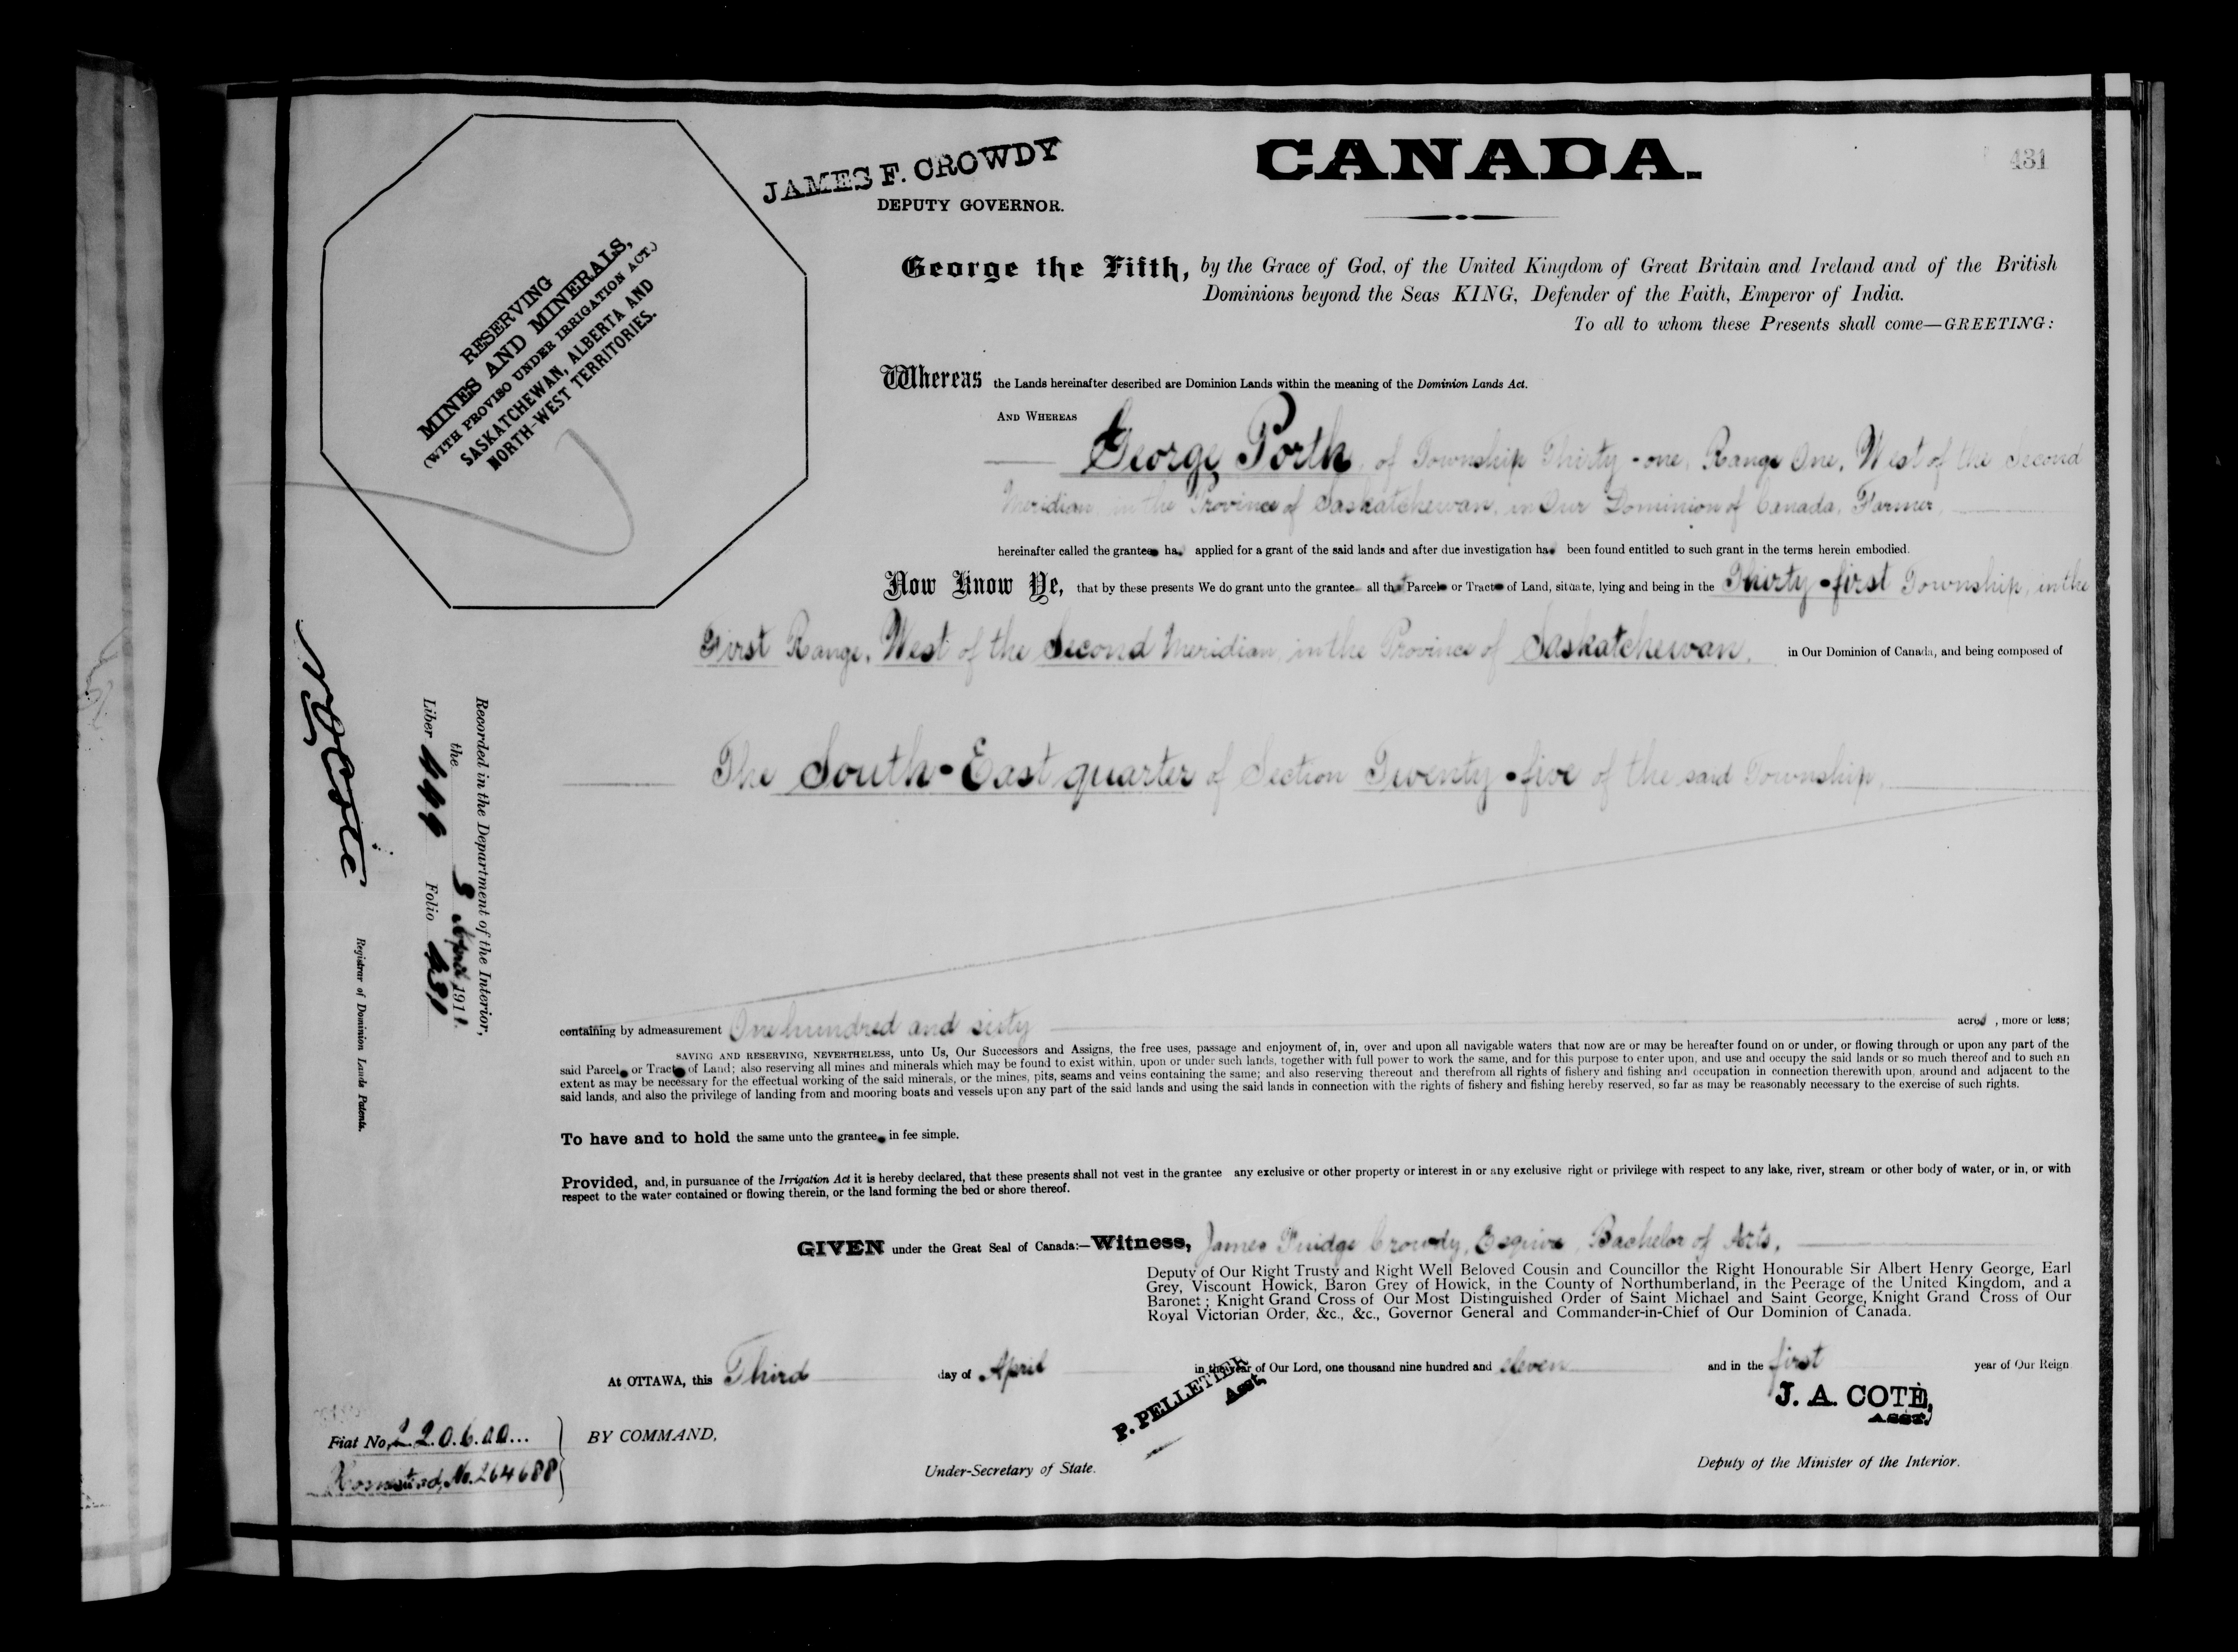 431
JAMES F. CROWDY
DEPUTY GOVERNOR.
CANADA.
RESERVING
MINES AND MINERALS,
(WITH PROVISO UNDER IRRIGATION ACT.)
SASKATCHEWAN, ALBERTA AND
NORTH-WEST TERRITORIES.
George the Fifth, by the Grace of God, of the United Kingdom of Great Britain and Ireland and of the British
Dominions beyond the Seas KING, Defender of the Faith, Emperor of India.
To all to whom these Presents shall come—GREETING:
Whereas the Lands hereinafter described are Dominion Lands within the meaning of the Dominion Lands Act.
AND WHEREAS
George Porth, of Township Thirty-one, Range One, West of the Second
Meridian, in the Province of Saskatchewan, in Our Dominion of Canada, Farmer,
hereinafter called the grantee ha applied for a grant of the said lands and after due investigation ha been found entitled to such grant in the terms herein embodied.
Now Know Ye, that by these presents We do grant unto the grantee all that Parcel or Tract of Land, situate, lying and being in the Thirty-first Township, in the
First Range, West of the Second Meridian, in the Province of Saskatchewan, in Our Dominion of Canada, and being composed of
The South-East quarter of Section Twenty-five of the said Township,
containing by admeasurement One hundred and sixty acres, more or less;
SAVING AND RESERVING, NEVERTHELESS, unto Us, Our Successors and Assigns, the free uses, passage and enjoyment of, in, over and upon all navigable waters that now are or may be hereafter found on or under, or flowing through or upon any part of the
said Parcel or Tract of Land; also reserving all mines and minerals which may be found to exist within, upon or under such lands, together with full power to work the same, and for this purpose to enter upon, and use and occupy the said lands or so much thereof and to such an
extent as may be necessary for the effectual working of the said minerals, or the mines, pits, seams and veins containing the same; and also reserving thereout and therefrom all rights of fishery and fishing and occupation in connection therewith upon, around and adjacent to the
said lands, and also the privilege of landing from and mooring boats and vessels upon any part of the said lands and using the said lands in connection with the rights of fishery and fishing hereby reserved, so far as may be reasonably necessary to the exercise of such rights.
To have and to hold the same unto the grantee in fee simple.
Provided, and, in pursuance of the Irrigation Act it is hereby declared, that these presents shall not vest in the grantee any exclusive or other property or interest in or any exclusive right or privilege with respect to any lake, river, stream or other body of water, or in, or with
respect to the water contained or flowing therein, or the land forming the bed or shore thereof.
GIVEN under the Great Seal of Canada:—Witness, James Fuidge Crowdy, Esquire, Bachelor of Arts,
Deputy of Our Right Trusty and Right Well Beloved Cousin and Councillor the Right Honourable Sir Albert Henry George, Earl
Grey, Viscount Howick, Baron Grey of Howick, in the County of Northumberland, in the Peerage of the United Kingdom, and a
Baronet; Knight Grand Cross of Our Most Distinguished Order of Saint Michael and Saint George, Knight Grand Cross of Our
Royal Victorian Order, &c., &c., Governor General and Commander-in-Chief of Our Dominion of Canada.
At OTTAWA, this Third day of April in the year of Our Lord, one thousand nine hundred and eleven and in the first year of Our Reign
P. PELLETIER
Asst.
J. A. COTÉ,
ASST.
BY COMMAND,
Under-Secretary of State.
Deputy of the Minister of the Interior.
Fiat No. 220600
Homestead, No. 264688
Recorded in the Department of the Interior,
the 8 April 1911.
Liber 499 Folio 431
N O Coté
Registrar of Dominion Lands Patents.